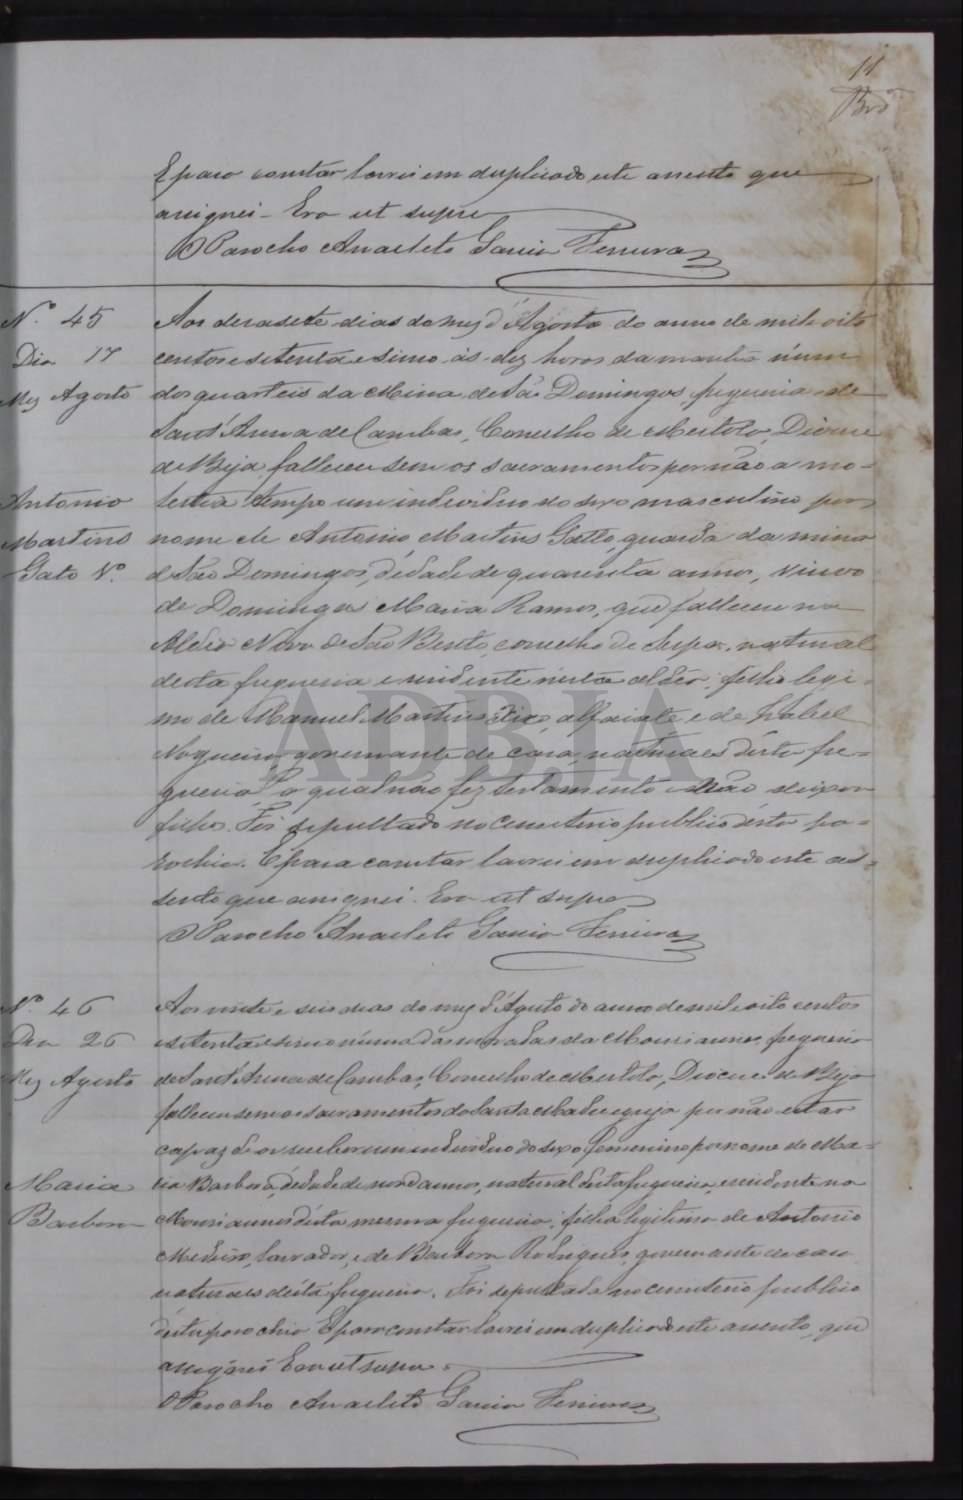 11
E para constar lavrei em duplicado este assento que
assignei - Era ut supra
O Parocho Anacleto Garcia Ferreira
N.º 45
Dia 17
Mez Agosto
Antonio
Martins
Gato V.º
Aos desasete dias do mez d'Agosto do anno de mil oito
centos e setenta e sinco ás dez horas da manhã n'um
dos quarteis da Mina de São Domingos, freguezia de
Sant'Anna de Cambas, Concelho de Mertola, Diocese
de Beja, falleceu sem os sacramentos por não a mo-
lestia tempo um individuo do sexo masculino por
nome de Antonio Martins Gatto, guarda da mina
de São Domingos, d'edade de quarenta annos, viuvo
de Domingas Maria Ramos, que falleceu na
Aldeia Nova de São Bento, concelho de Serpa, natural
desta freguezia e residente nesta aldeia, filho legi-
mo de Manuel Martins alfaiate e de Isabel
Nogueira governante de casa, naturaes désta fre-
guezia, o qual não fez testamento e não deixou
filhos. Foi sepultado no cemiterio publico désta pa-
rochia. E para constar lavrei em duplicado este as-
sento que assignei. Era ut supra
O Parocho Anacleto Garcia Ferreira
ADBJA
N.º 46
Dia 26
Mez Agosto
Maria
Barbora
Aos vinte e seis dias do mez d'Agosto do anno de mil oito centos
e setenta e sinco n'uma das moradas da freguezia
de Sant'Anna de Cambas, Concelho de Mertola, Diocese de Beja
falleceu sem os sacramentos da Santa Madre egreja por não estar
capaz de os receber um individuo do sexo femenino por nome de Ma-
ria Barbora, d'edade de annos, natural desta freguezia, e residente na
désta mesma freguezia, filha legitima de Antonio
lavrador, e de Barbora Rodrigues, governante de casa
naturaes désta freguezia. Foi sepultada no cemiterio publico
désta parochia E para constar lavrei em duplicado este assento, que
assignei Era ut supra.
O Parocho Anacleto Garcia Ferreira